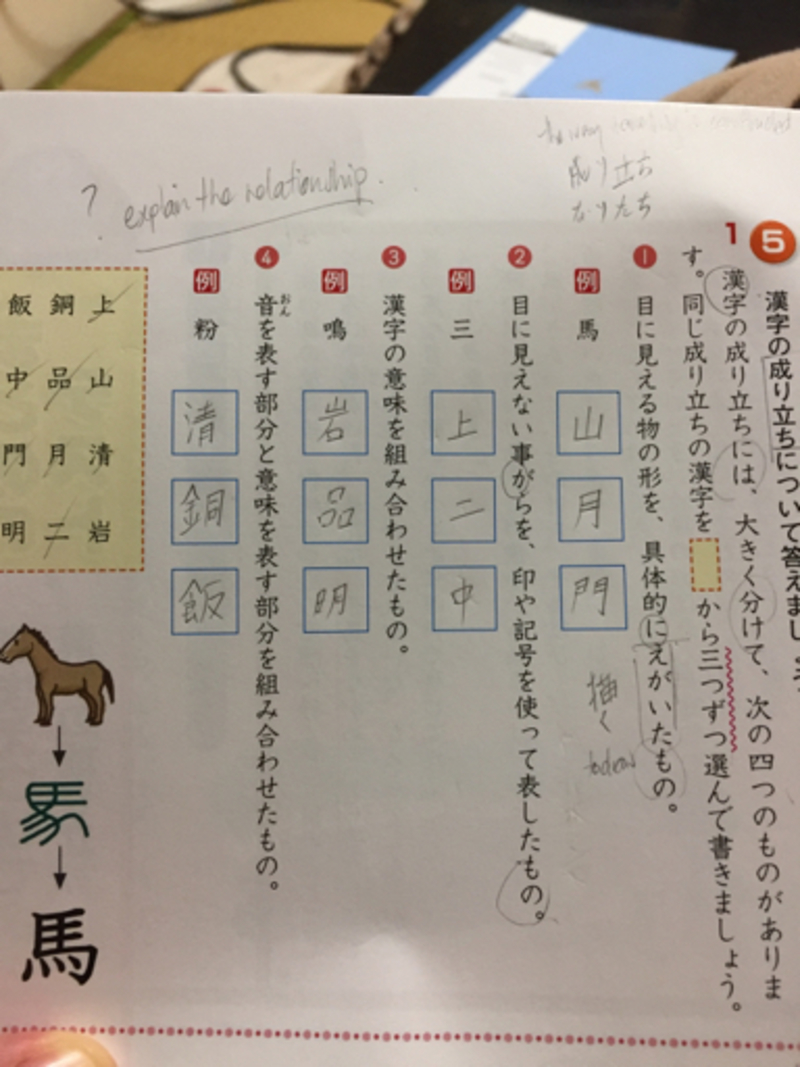 5
漢字の成り立ちについて答えまし
1 漢字の成り立ちには、大きく分けて、次の四つのものがありま
す。同じ成り立ちの漢字を から三つずつ選んで書きましょう。
1 目に見える物の形を、具体的にえがいたもの。
例 馬 山 月 門
2 目に見えない事がらを、印や記号を使って表したもの。
例 三 上 二 中
3 漢字の意味を組み合わせたもの。
例 鳴 岩 品 明
4 音を表す部分と意味を表す部分を組み合わせたもの。
おん
例 粉 清 銅 飯
上 山 清 岩
銅 品 月 二
飯 中 門 明
馬
the way
成り立ち
なりたち
? explain the relationship.
描く